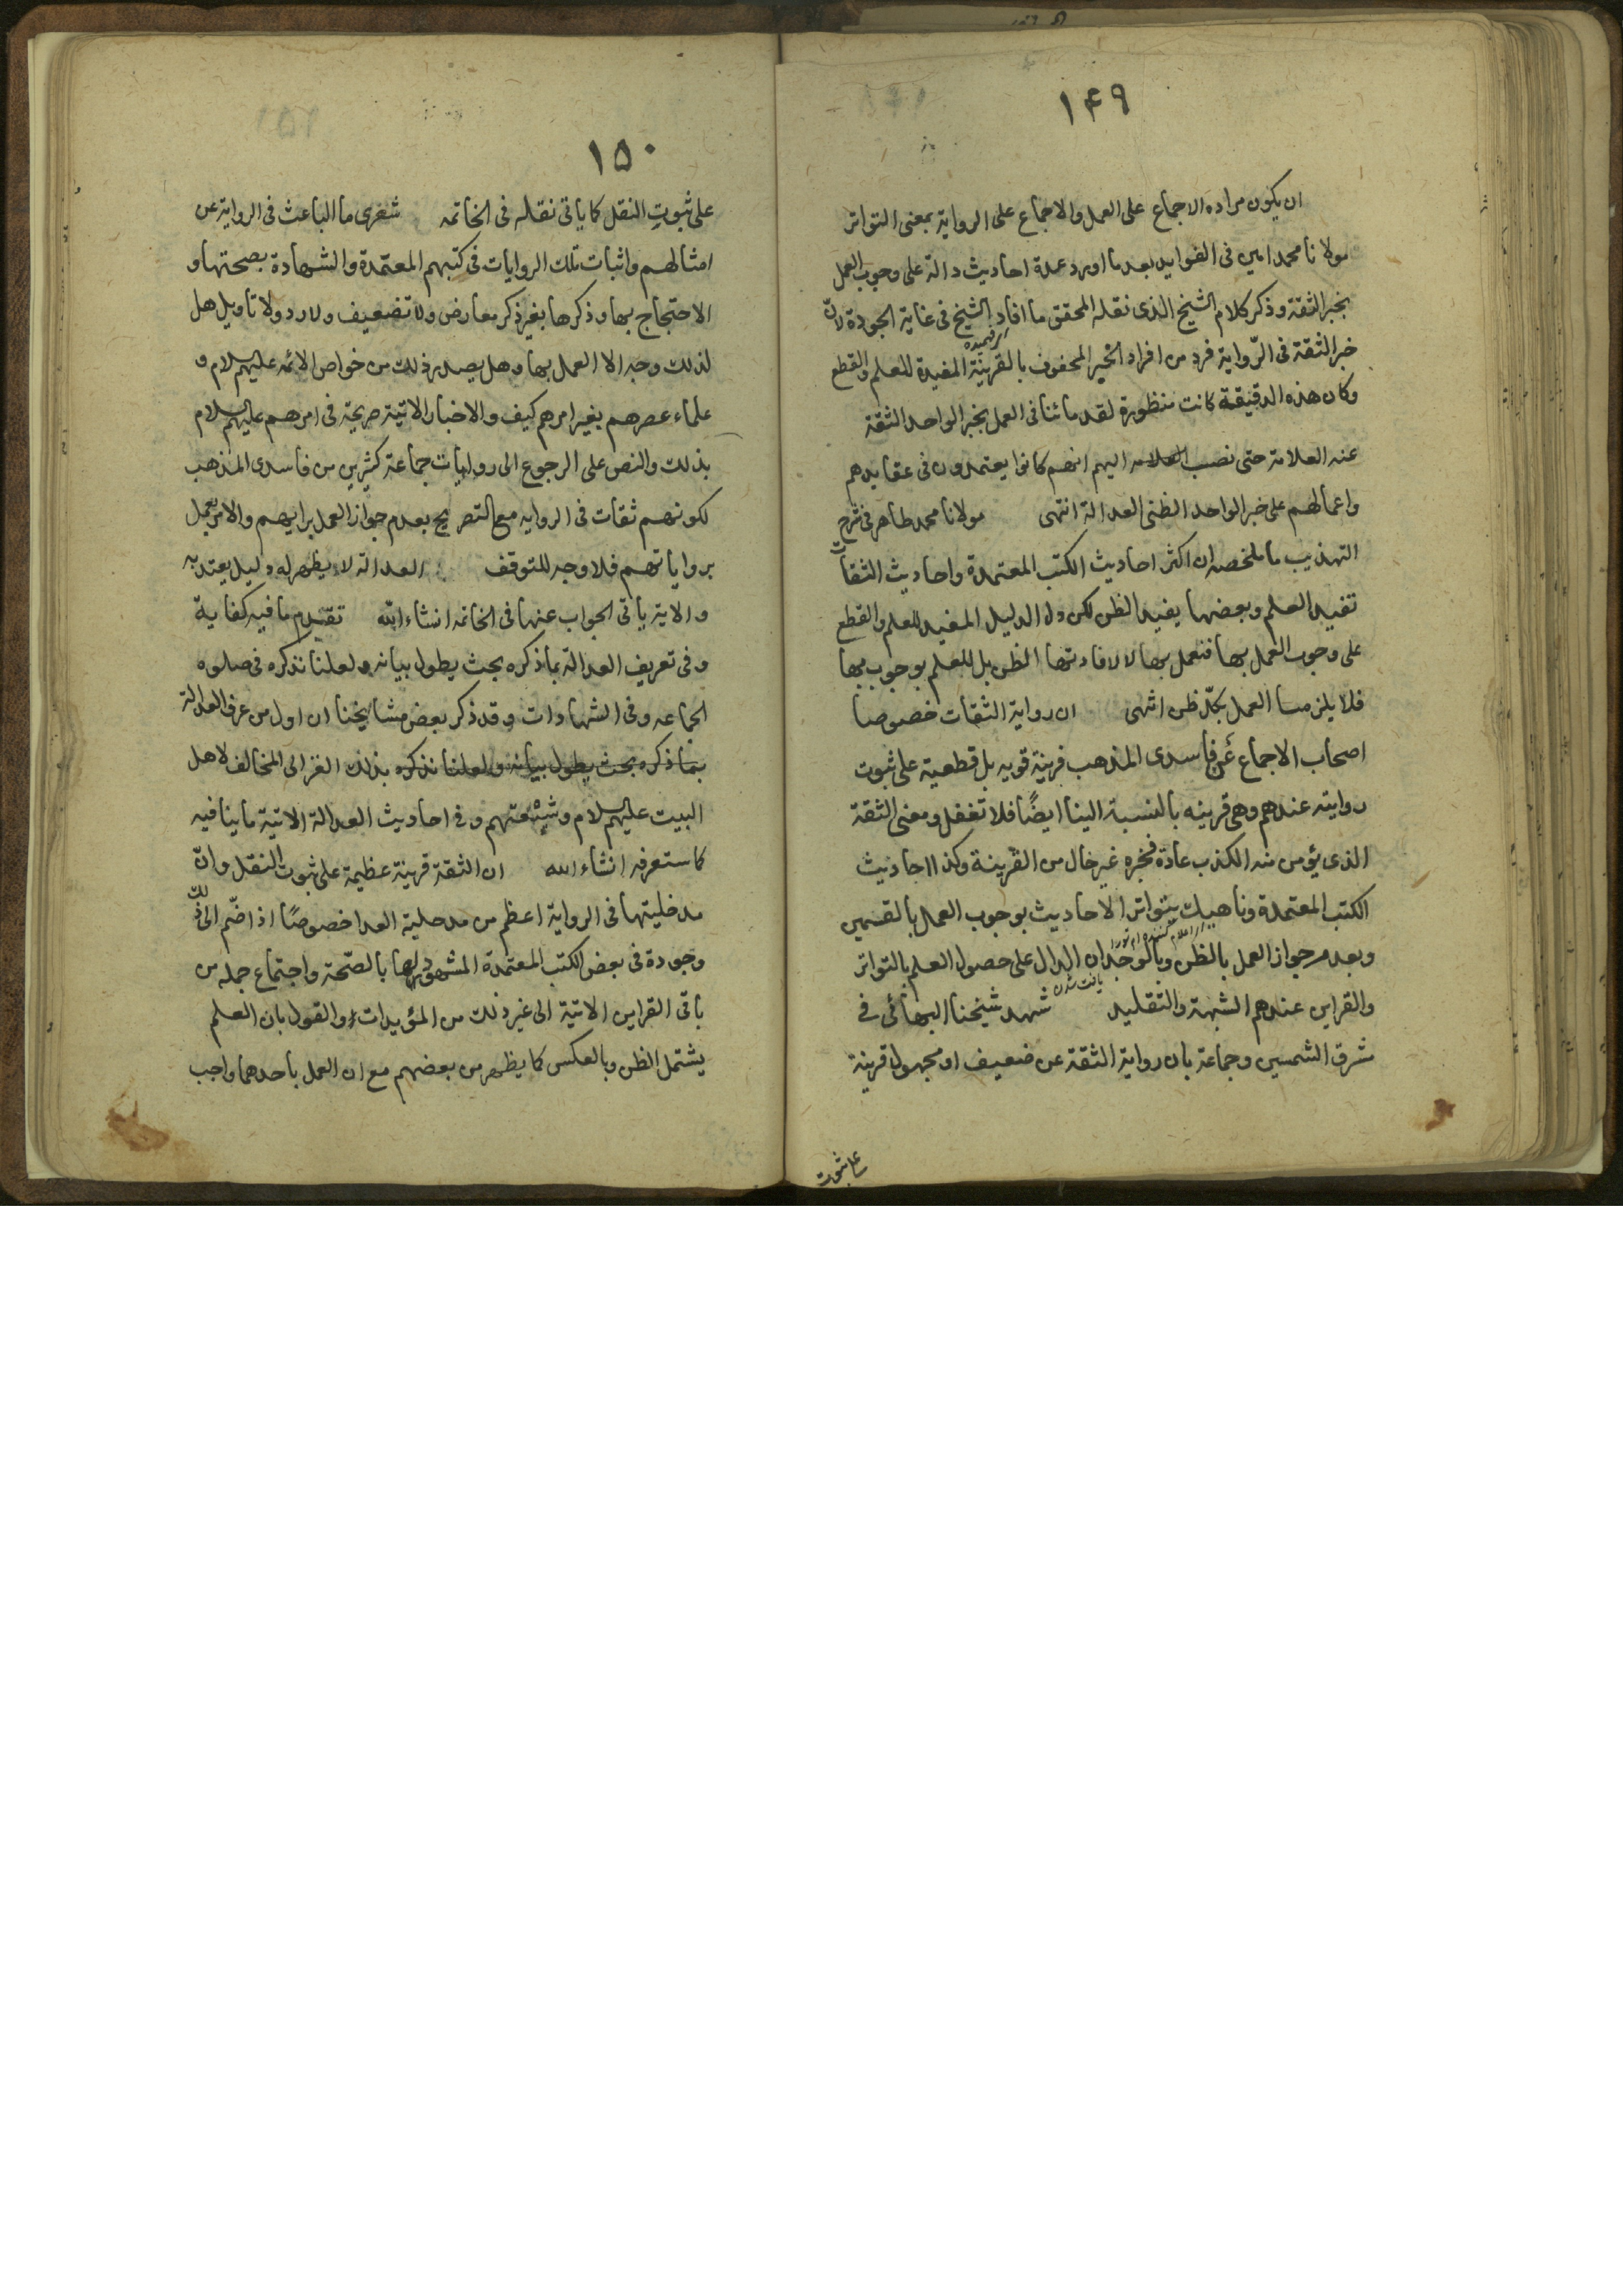 ١۴٩
ان يكون مراده الاجماع على العمل والاجماع على الرواية بمعنى التواتر
مولانا محمد امين فى الفوايد بعد ما اورد عدة احاديث دالة على وجوب العمل
بخبر الثقة وذكر كلام الشيخ الذى نقله المحقق ما افاد الشيخ فى غاية الجودة لانّ
خبر الثقة فى الرّواية فرد من افراد الخبر المحفوف بالقرينة المفيدة للعلم والقطع
وكان هذه الدقيقة كانت منظورة لقدمائنا فى العمل بخبر الواحد الثقة
عند العلامة حتى نصب العلامه اليهم انهم كانوا يعتمدون فى عقايدهم
واعمالهم على خبر الواحد الظنى العدالة انتهى مولانا محمد طاهر فى شرح
التهذيب ما ملخصه ان اكثر احاديث الكتب المعتمدة واحاديث الثقات
تفيد العلم وبعضها يفيد الظن لكن دل الدليل المفيد للعلم والقطع
على وجوب العمل بها فنعمل بها لا لافادتها الظن بل للعلم بوجوب بها
فلا يلزمنا العمل بكلّ ظن انتهى ان رواية الثقات خصوصا
اصحاب الاجماع عَن فاسدى المذهب قرينة قويه بل قطعية على ثبوت
روايته عندهم وهى قرينه بالنسبة الينا ايضًا فلا تغفل ومعنى الثقة
الذى يؤمن منه الكذب عادة فخبره غير خال من القرينة وكذا احاديث
الكتب المعتمدة وناهيك بتواتر الاحاديث بوجوب العمل بالقسمين
وبعدم جواز العمل بالظن وبالوجدان الدال على حصول العلم بالتواتر
يافت شدن
والقراين عندهم الشبهة والتقليد شهد شيخنا البهائى فى
مشرق الشمسين وجماعة بان رواية الثقة عن ضعيف او مجهول قرينة
على ثبوت
١۵٠
على ثبوت النقل كما ياتى نقله فى الخاتمه شعرى ما الباعث فى الرواية عن
امثالهم واثبات تلك الروايات فى كتبهم المعتمدة والشهادة بصحتها و
الاحتجاج بها وذكرها بغير ذكر معارض ولا تضعيف ولا رد ولا تاويل هل
لذلك وجه الا العمل بها وهل يصدر ذلك من خواص الائمه عليهم السلام و
علماء عصرهم بغير امرهم كيف والاخبار الاتية صريحة فى امرهم عليهم السلام
بذلك والنص على الرجوع الى روايات جماعة كثيرين من فاسدى المذهب
لكونهم ثقات فى الروايه مع التصريح بعدم جواز العمل برايهم والامر بعمل
برواياتهم فلا وجه للتوقف العدالة لا يظهر له دليل يعتد به
والاية ياتى الجواب عنها فى الخاتمه انشاء الله تقدم ما فيه كفاية
وفى تعريف العدالة بما ذكره بحث يطول بيانه ولعلنا نذكره فى صلوه
الجماعه وفى الشهادات وقد ذكر بعض مشايخنا ان اول من عرف العدالة
بما ذكره بحث يطول بيانه ولعلنا نذكره بذلك الغزالى المخالف لاهل
البيت عليهم السلام وشيعتهم وفى احاديث العدالة الاتية ما ينافيه
كما ستعرفه انشاء الله ان الثقة قرينة عظيمة على ثبوت النقل وانّ
مدخليتها فى الرواية اعظم من مدخلية العدا خصوصًا اذا ضّم الى ذلك
وجودة فى بعض الكتب المعتمدة المشهود لها بالصّحة واجتماع جمله من
باقى القراين الاتية الى غير ذلك من المؤيدات والقول بان العلم
يشتمل الظن وبالعكس كما يظهر من بعضهم مع ان العمل باحدهما واجب